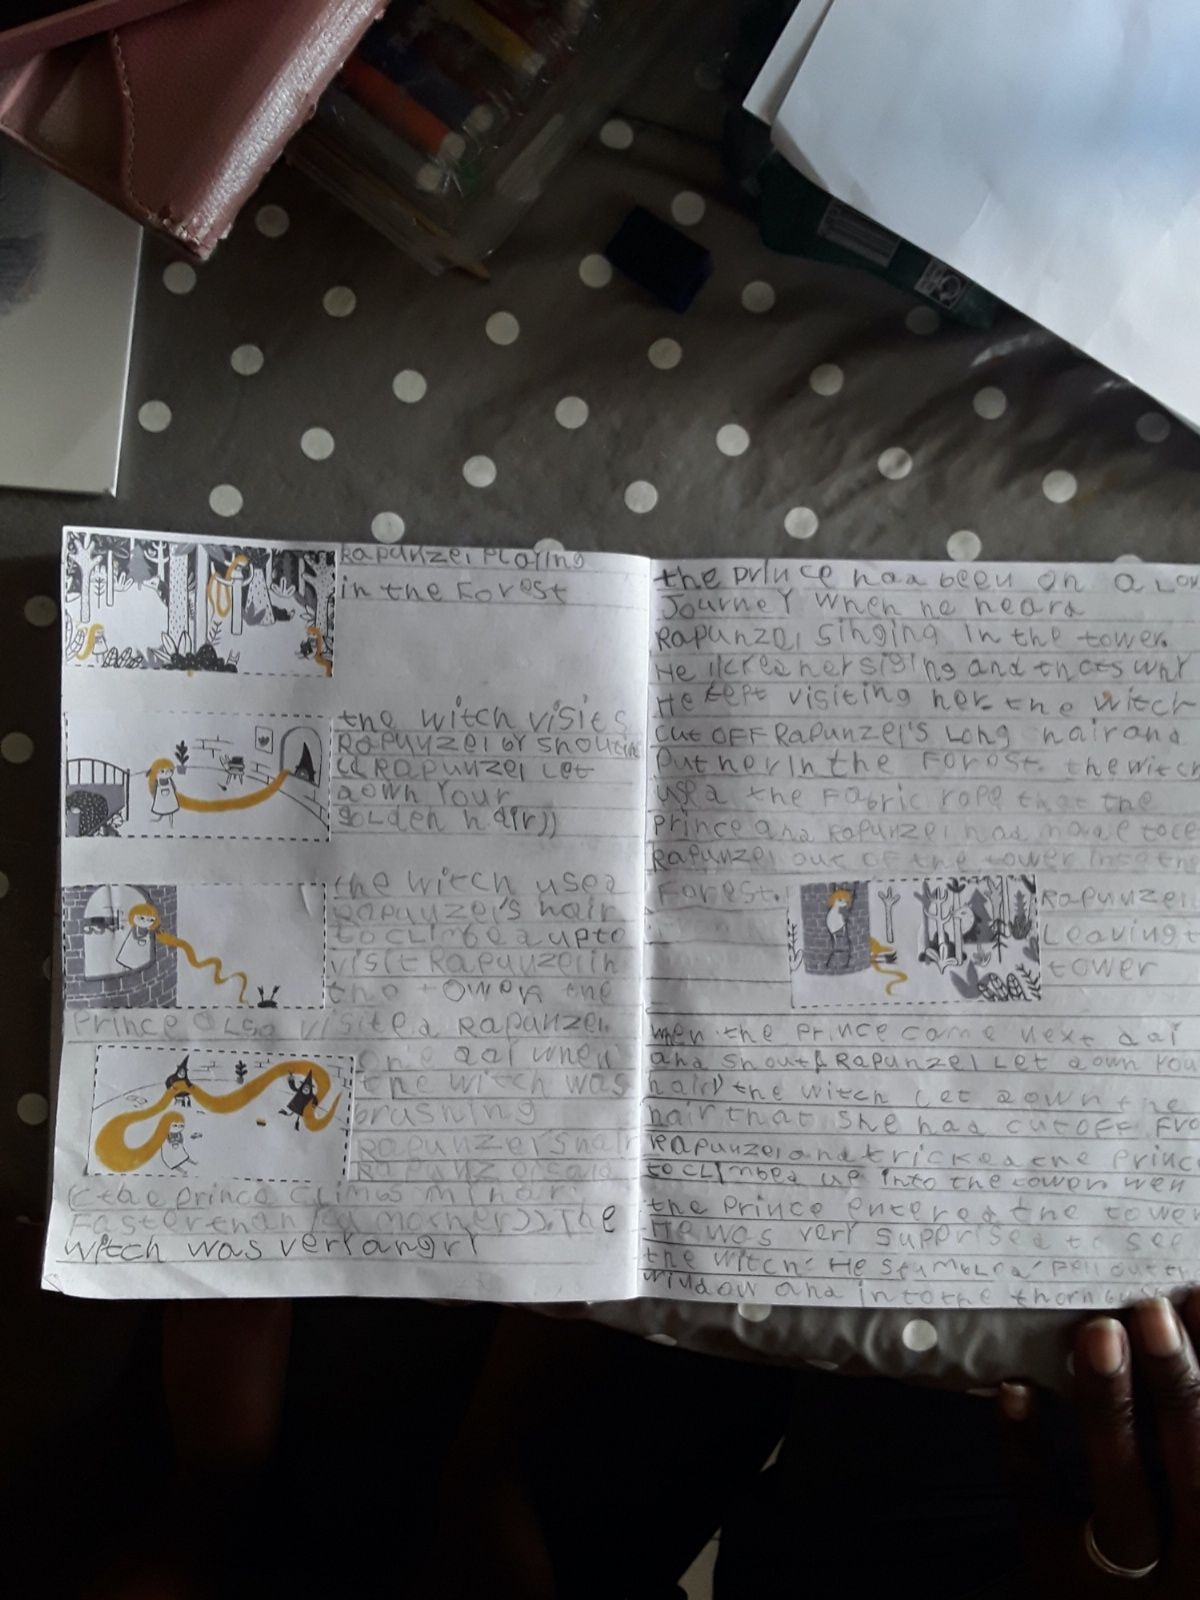 Rapunzel Playing
in the Forest
the witch visits
Rapunzel by shouting
"Rapunzel Let
down Your
golden hair"
the witch used
Rapunzel's hair
to climbed up to
visit Rapunzel in
the tower the
Prince also visited Rapunzel
One dai when
the witch was
brushing
Rapunzel's hair
"the prince climbs my hair
Faster than you mother". The
witch was very angry
the prince has been on a lon
Journey when he heard
Rapunzel singing in the tower.
He liked her siging and thats why
He kept visiting her. the witch
cut OFF Rapunzel's Long hair and
Put her in the Forest. the witch
used the Fabric rope that the
prince and Rapunzel had made to
Rapunzel out of the tower into the
Forest.
Rapunzel
Leaving t
tower
when the Prince came next dai
and shout "Rapunzel Let down you
hair" the witch Let down the
hair that she had cut off Fro
Rapunzel and tricked the Prince
to climbed up into the tower. wen
the Prince entered the tower
He was very supprised to see
the witch. He stumbled Fell out th
window and into the thorn